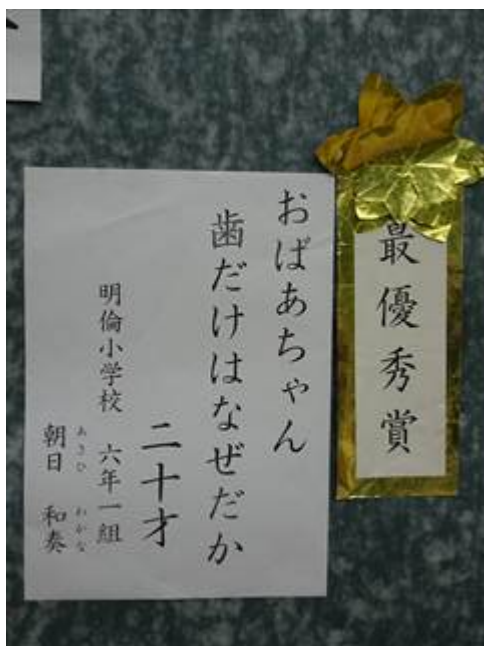 最優秀賞
おばあちゃん
歯だけはなぜだか
二十才
明倫小学校 六年一組
朝日 和奏
あさひ わかな